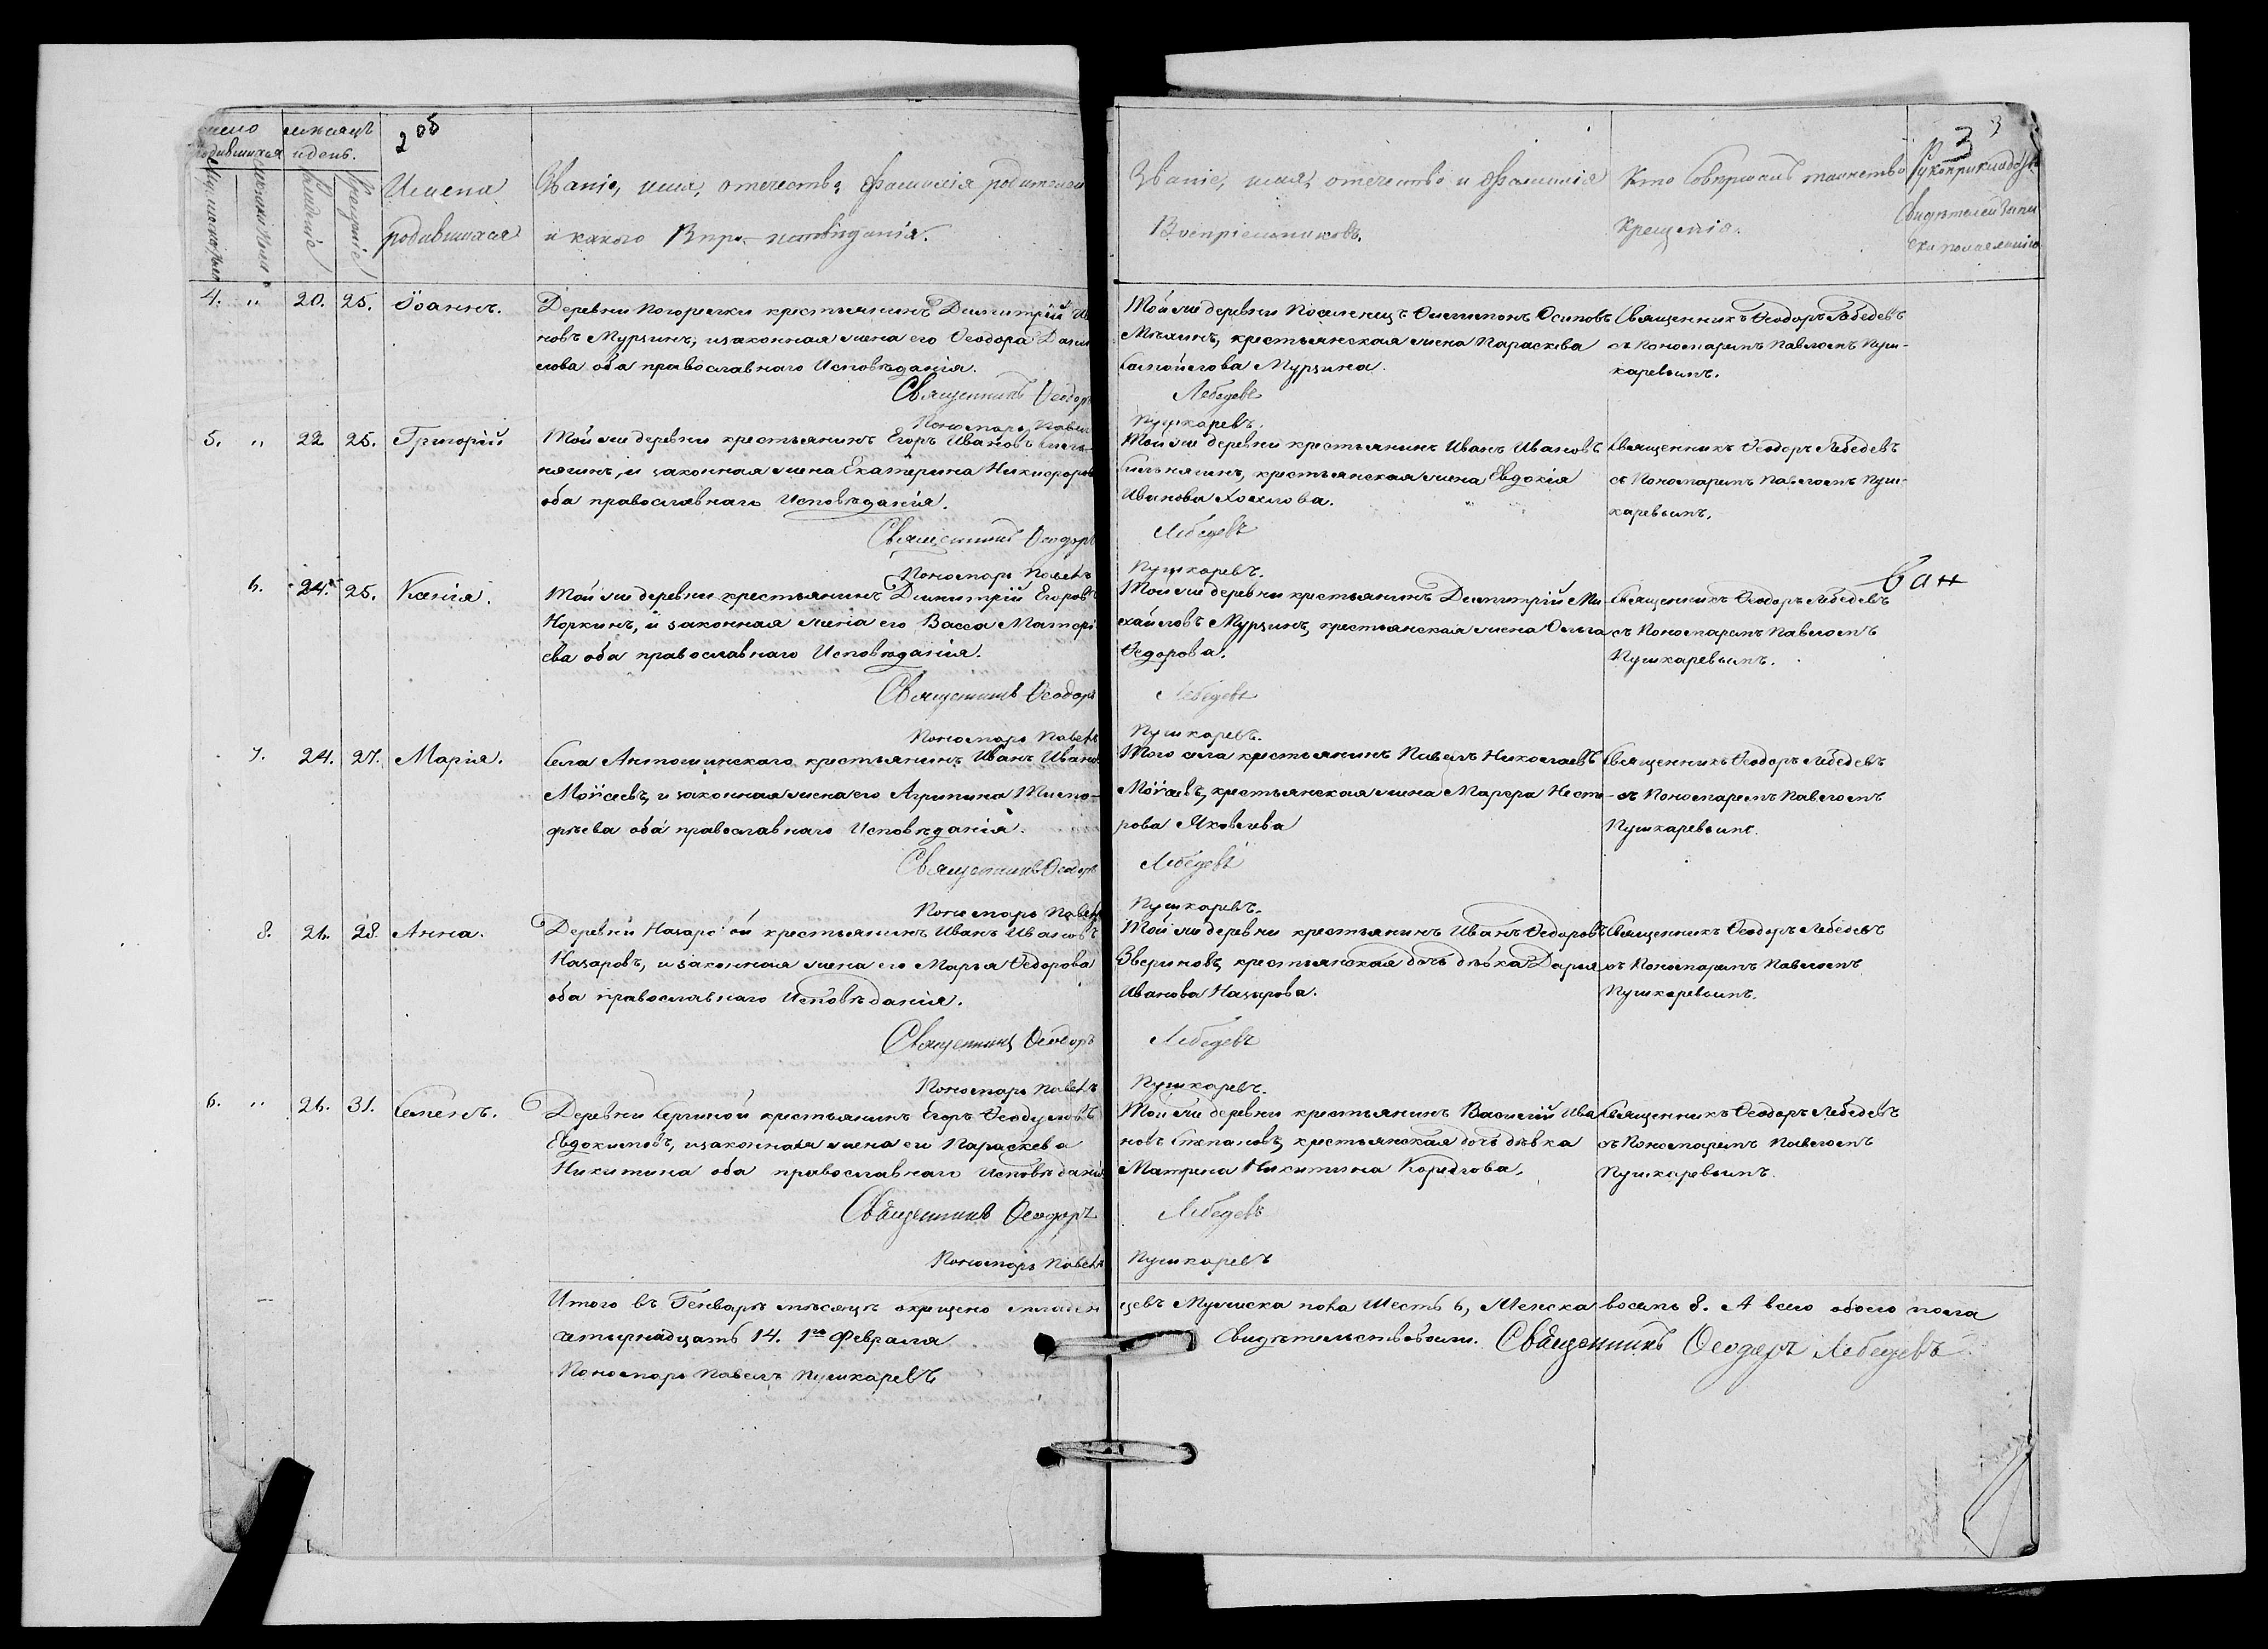 число мѣсяцъ
родившихся и день.
208
3
Мужескаго пола
Женскаго пола
Рожденія
Крещенія
Имена
родившихся
Званіе, имя, отечество, Фамилія родителей
и какого Вѣроисповѣданія.
Званіе, имя, отечество и Фамилія
Воспріемниковъ.
Кто Совершалъ таинство
Крещенія.
Рукоприкладство
Свидѣтелей запи
си по желанію
4. „ 20. 25. Іоаннъ.
Деревни Погорелки крестьянинъ Димитрій Ива
новъ Мурзинъ, и законная жена его Ѳеодора Дани
лова оба православнаго Исповѣданія.
Священникъ Ѳеодоръ
Пономарь Павелъ
Той же деревни Поселенецъ Филимонъ Осиповъ
крестьянская жена Параскева
Самойлова Мурзина.
Лебедевъ
Пушкаревъ.
Священникъ Ѳеодоръ Лебедевъ
съ Пономаремъ Павломъ Пуш-
каревымъ.
5. „ 22 25. Григорій
Той же деревни крестьянинъ Егоръ Ивановъ Силь
нягинъ, и законная жена Екатерина Никифоров
оба православнаго Исповѣданія.
Священникъ Ѳеодоръ
Пономарь Павелъ
Той же деревни крестьянинъ Иванъ Ивановъ
Сильнягинъ, крестьянская жена Евдокія
Иванова Хохлова.
Лебедевъ
Пушкаревъ.
Священникъ Ѳеодоръ Лебедевъ
съ Пономаремъ Павломъ Пуш-
каревымъ.
6. 24. 25. Ксенія.
Той же деревни крестьянинъ Димитрій Егоровъ
Норкинъ, и законная жена его Васса
ева оба православнаго Исповѣданія.
Священникъ Ѳеодоръ
Пономарь Павелъ
Той же деревни крестьянинъ Димитрій Ми-
хайловъ Мурзинъ, крестьянская жена Ольга
Ѳедорова.
Лебедевъ
Пушкаревъ.
Священникъ Ѳеодоръ Лебедевъ
съ Пономаремъ Павломъ
Пушкаревымъ.
7. 24. 27. Марія.
Села Антошинскаго крестьянинъ Иванъ Иванов
Моѵсеевъ, и законная жена его Агрипина Тимо-
фѣева оба православнаго Исповѣданія.
Священникъ Ѳеодоръ
Пономарь Павелъ
Того села крестьянинъ Павелъ Николаевъ
Моѵсеевъ, крестьянская жена Марфа Несте-
рова Яковлева
Лебедевъ
Пушкаревъ.
Священникъ Ѳеодоръ Лебедевъ
съ Пономаремъ Павломъ
Пушкаревымъ.
8. 26. 28. Анна.
Деревни Назаровой крестьянинъ Иванъ Ивановъ
Назаровъ, и законная жена его Марья Ѳедорова
оба православнаго Исповѣданія.
Священникъ Ѳеодоръ
Пономарь Павелъ
Той же деревни крестьянинъ Иванъ Ѳедоровъ
Звериновъ, крестьянская дочь дѣвка Дарья
Иванова Назарова.
Лебедевъ
Пушкаревъ.
Священникъ Ѳеодоръ Лебедевъ
съ Пономаремъ Павломъ
Пушкаревымъ.
6. „ 26. 31. Семенъ.
Деревни Сергиной крестьянинъ Егоръ Ѳеодуловъ
Евдокимовъ, и законная жена его Параскева
Никитина оба православнаго Исповѣданія
Священникъ Ѳеодоръ
Пономарь Павелъ
Той же деревни крестьянинъ Василій Ива
новъ Степановъ, крестьянская дочь дѣвка
Матрена Никитина
Лебедевъ
Пушкаревъ
Священникъ Ѳеодоръ Лебедевъ
съ Пономаремъ Павломъ
Пушкаревымъ.
Итого въ Генварѣ мѣсяцѣ окрещено младен цевъ Мужеска пола Шесть 6, Женска восемь 8. А всего обоего пола
четырнадцать 14. 1го Февраля Свидѣтельствовали. Священникъ Ѳеодоръ Лебедевъ
Пономарь Павелъ Пушкаревъ